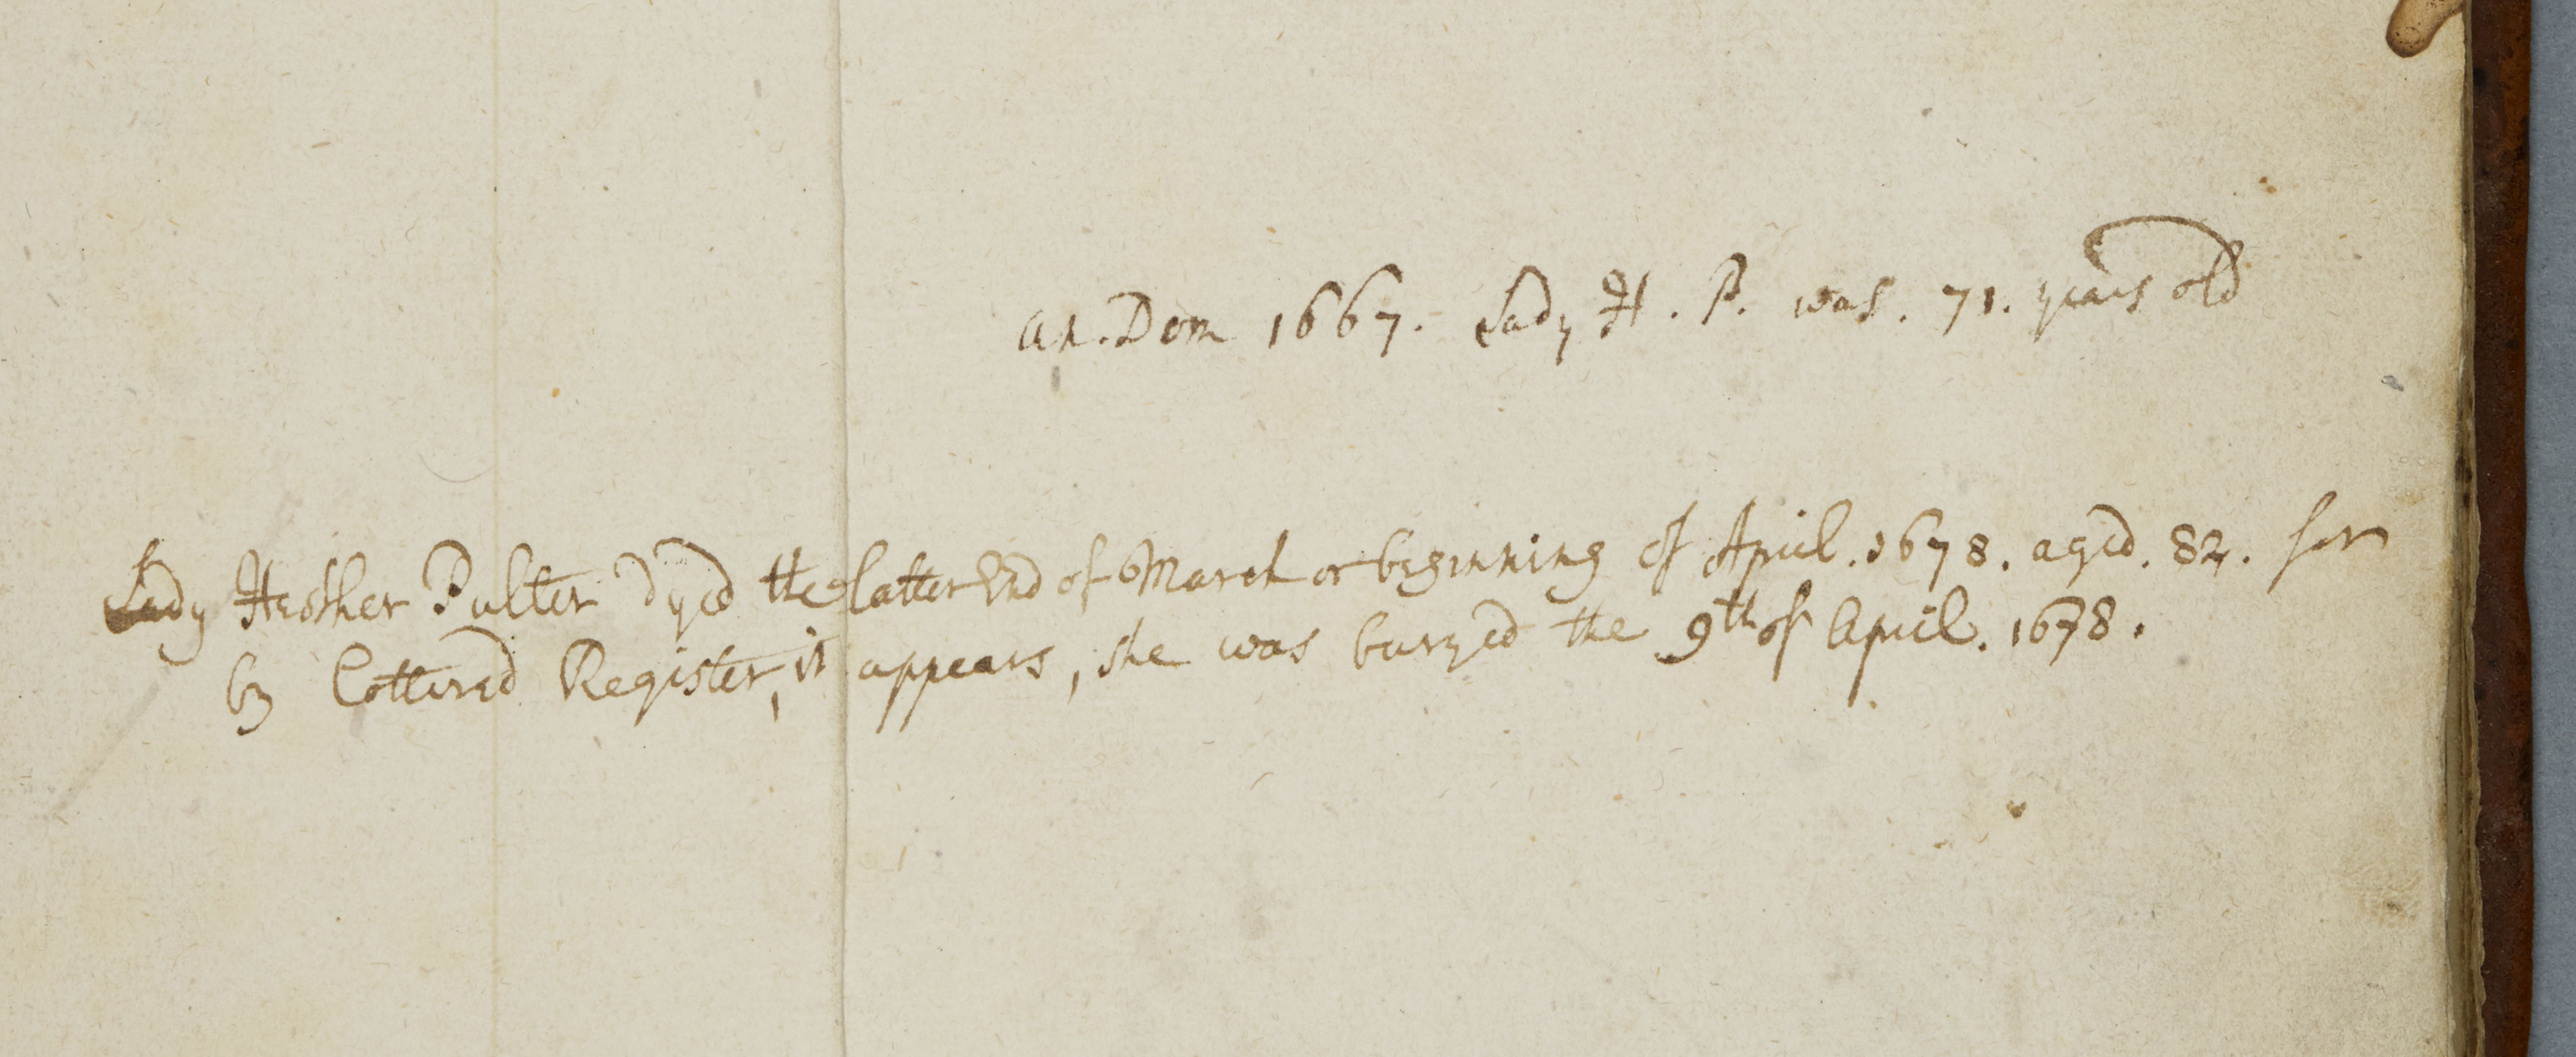 An. Dom 1667. Lady H. P. was. 71. years old
Lady Hesther Pulter Dyed the latter End of March or beginning of April. 1678. aged. 82. for
by Cottered Register, it appears, she was buryed the 9th of April. 1678.